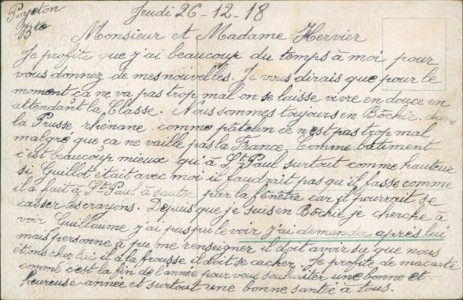 Poyeton
Bte
Jeudi 26-12-18
Monsieur et Madame Hervier
Je profite que j'ai beaucoup du temps à moi pour
vous donnez de mes nouvelles. Je vous dirais que pour le
moment ça ne va pas trop mal on se laisse vivre en douce en
attendant la Classe. Nous sommes toujours en Bochie, dans
la Prusse rhénane, comme patelin ce n'est pas trop mal
malgré que ça ne vaille pas la France. Comme batiment
c'est beaucoup mieux qu'à St Paul surtout comme hauteur
si Guillot était avec moi il faudrait pas qu'il fasse comme
il a fait à St Paul à sauter par la fenêtre car il pourrait se
casser les crayons. Depuis que je suis en Bochie je cherche à
voir Guillaume j'ai pas pu le voir j'ai demander après lui
mais personne à pu me renseigner il doit avoir su que nous
étions chez lui il à la frousse il doit se cacher. Je profite de ma carte
comme c'est la fin de l'année pour vous souhaiter une bonne et
heureuse année et surtout une bonne santé à tous.